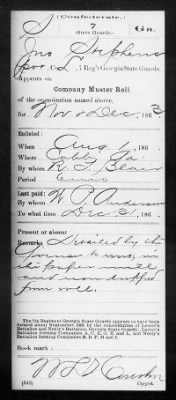 S
(Confederate.)
7
Ga.
(State Guards.)
Jno Stephens
Co. L, 7 Reg't Georgia State Guards.
Appears on
Company Muster Roll
of the organization named above,
for Nov & Dec, 1863.
Enlisted:
When Aug 1, 186
Where Cobb Co Ga.
By whom
Period 6 mos
Last paid:
By whom W. P. Anderson
To what time Dec 31, 186
Present or absent
Remarks: Detailed by the
Governor to
the paper mill
and now dropped
from roll.
The 7th Regiment Georgia State Guards appears to have been
formed about September, 1863, by the consolidation of Lester's
Battalion and Neely's Battalion, Georgia State Guards, Lester's
Battalion forming Companies A, C, E, G, K and L, and Neely's
Battalion forming Companies B, D, F, H and I.
Book mark:
(645)
Copyist.